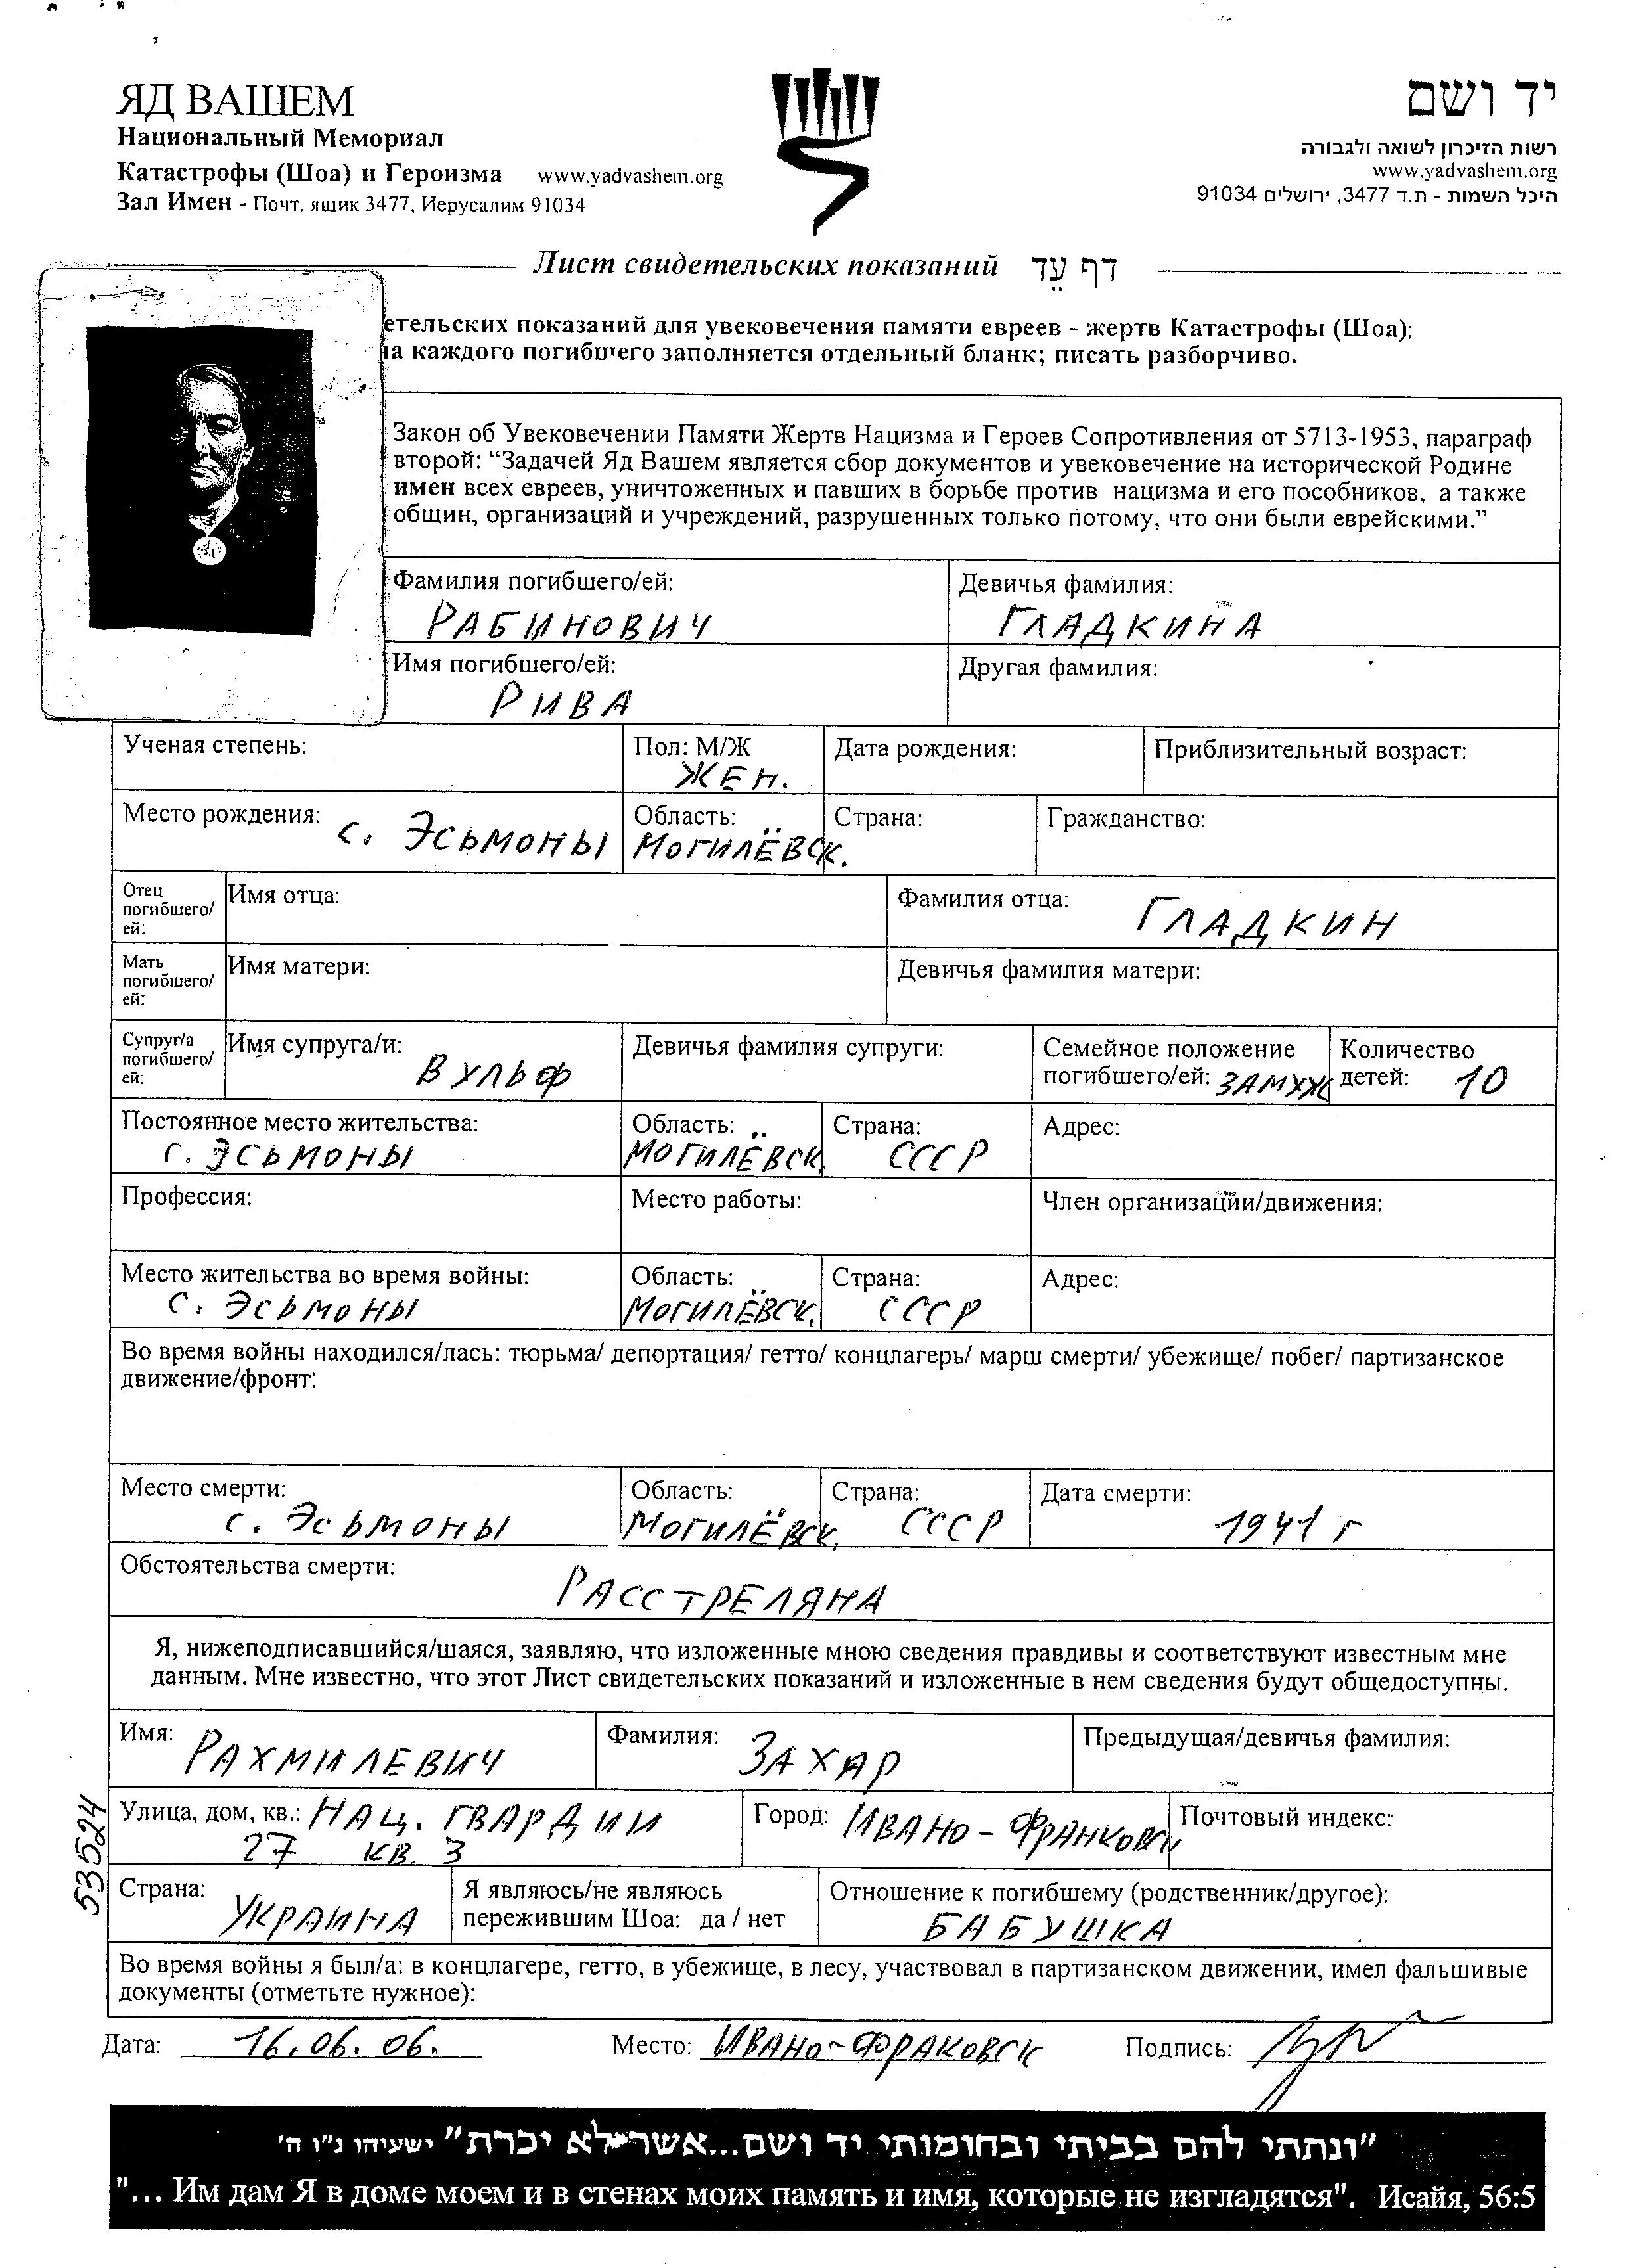 ЯД ВАШЕМ
Национальный Мемориал
Катастрофы (Шоа) и Героизма www.yadvashem.org
Зал Имен - Почт. ящик 3477, Иерусалим 91034
יד ושם
רשות הזיכרון לשואה ולגבורה
www.yadvashem.org
היכל השמות - ת.ד 3477, ירושלים 91034
Лист свидетельских показаний דף עֵד
етельских показаний для увековечения памяти евреев - жертв Катастрофы (Шоа);
на каждого погибшего заполняется отдельный бланк; писать разборчиво.
Закон об Увековечении Памяти Жертв Нацизма и Героев Сопротивления от 5713-1953, параграф
второй: “Задачей Яд Вашем является сбор документов и увековечение на исторической Родине
имен всех евреев, уничтоженных и павших в борьбе против нацизма и его пособников, а также
общин, организаций и учреждений, разрушенных только потому, что они были еврейскими.”
Фамилия погибшего/ей: Девичья фамилия:
РАБИНОВИЧ ГЛАДКИНА
Имя погибшего/ей: Другая фамилия:
РИВА
Ученая степень: Пол: М/Ж Дата рождения: Приблизительный возраст:
ЖЕН.
Место рождения: с. ЭСЬМОНЫ Область: Страна: Гражданство:
МОГИЛЁВСК.
Отец
погибшего/
ей:
Имя отца: Фамилия отца: ГЛАДКИН
Мать
погибшего/
ей:
Имя матери: Девичья фамилия матери:
Супруг/а
погибшего/
ей:
Имя супруга/и: ВУЛЬФ Девичья фамилия супруги: Семейное положение
погибшего/ей: ЗАМУЖ
Количество
детей: 10
Постоянное место жительства: Область: Страна: Адрес:
г. ЭСЬМОНЫ МОГИЛЁВСК. СССР
Профессия: Место работы: Член организации/движения:
Место жительства во время войны: Область: Страна: Адрес:
С. ЭСЬМОНЫ МОГИЛЁВСК. СССР
Во время войны находился/лась: тюрьма/ депортация/ гетто/ концлагерь/ марш смерти/ убежище/ побег/ партизанское
движение/фронт:
Место смерти: Область: Страна: Дата смерти:
с. ЭСЬМОНЫ МОГИЛЁВСК. СССР 1941 г
Обстоятельства смерти:
РАССТРЕЛЯНА
Я, нижеподписавшийся/шаяся, заявляю, что изложенные мною сведения правдивы и соответствуют известным мне
данным. Мне известно, что этот Лист свидетельских показаний и изложенные в нем сведения будут общедоступны.
Имя: РАХМИЛЕВИЧ Фамилия: ЗАХАР Предыдущая/девичья фамилия:
Улица, дом, кв.: НАЦ. ГВАРДИИ Город: ИВАНО-ФРАНКОВСК Почтовый индекс:
27 КВ. 3
53524
Страна: УКРАИНА Я являюсь/не являюсь
пережившим Шоа: да / нет
Отношение к погибшему (родственник/другое):
БАБУШКА
Во время войны я был/а: в концлагере, гетто, в убежище, в лесу, участвовал в партизанском движении, имел фальшивые
документы (отметьте нужное):
Дата: 16.06.06. Место: ИВАНО-ФРАКОВСК Подпись:
"ונתתי להם בביתי ובחומותי יד ושם...אשר לא יכרת" ישעיהו נ"ו ה'
"... Им дам Я в доме моем и в стенах моих память и имя, которые не изгладятся". Исайя, 56:5